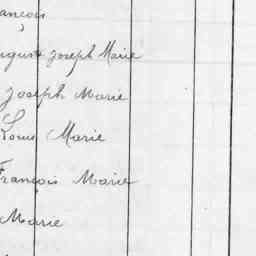 ançois
ugust Joseph Marie
Joseph Marie
Louis Marie
François Marie
Marie